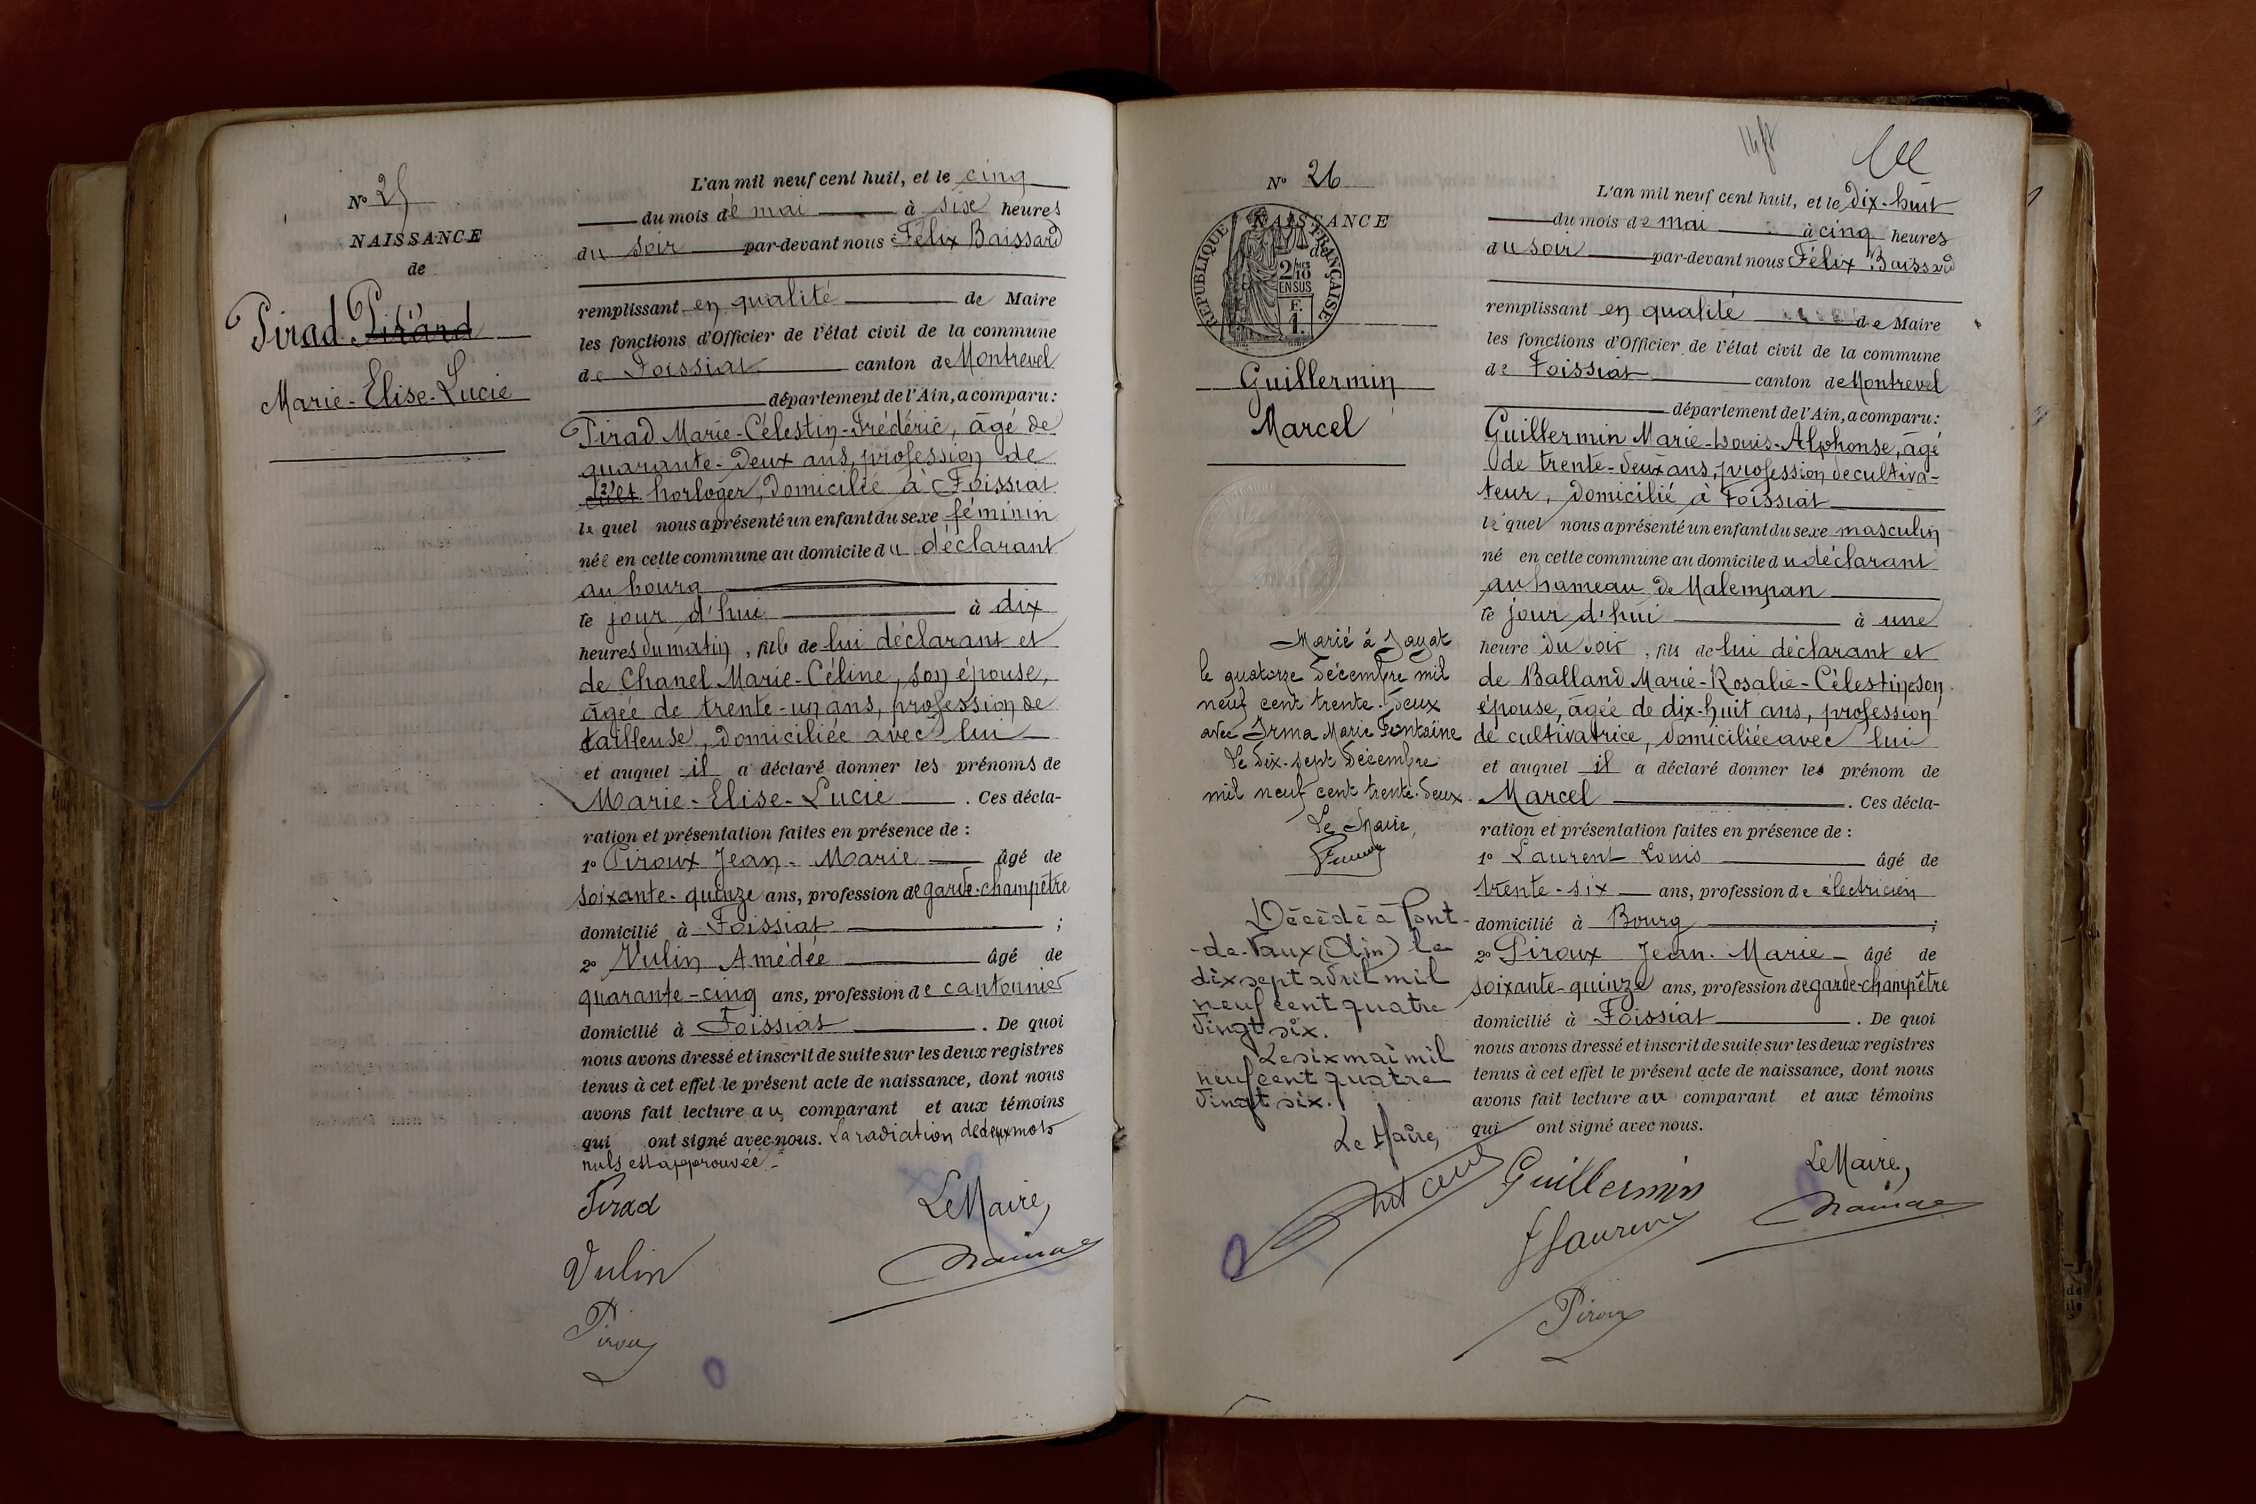 N° 25
NAISSANCE
de
Pirad Pirard
Marie-Elise-Lucie
L'an mil neuf cent huit, et le cinq
du mois de mai à six heures
du soir par-devant nous Félix Baissard
remplissant en qualité de Maire
les fonctions d'Officier de l'état civil de la commune
de Foissiat canton de Montrevel
département de l'Ain, a comparu:
Pirad Marie-Célestin-Frédéric, âgé de
quarante-deux ans, profession de
horloger, domicilié à Foissiat
lequel nous a présenté un enfant du sexe féminin
née en cette commune au domicile du déclarant
au bourg
le jour d'hui à dix
heures du matin, fille de lui déclarant et
de Chanel Marie-Céline, son épouse,
âgée de trente-un ans, profession de
tailleuse, domiciliée avec lui
et auquel il a déclaré donner les prénoms de
Marie-Elise-Lucie. Ces décla-
ration et présentation faites en présence de :
1° Piroux Jean-Marie âgé de
soixante-quinze ans, profession de garde-champêtre
domicilié à Foissiat ;
2° Vulin Amédée âgé de
quarante-cinq ans, profession de cantonnier
domicilié à Foissiat. De quoi
nous avons dressé et inscrit de suite sur les deux registres
tenus à cet effet le présent acte de naissance, dont nous
avons fait lecture au comparant et aux témoins
qui ont signé avec nous. La radiation de deux mots
nuls est approuvée.
Pirad
Le Maire,
Vulin
Piroux
N° 26
NAISSANCE
de
REPUBLIQUE FRANÇAISE
2/10 EN SUS
F. 1.
Guillermin
Marcel
Marié à Jayat
le quatorze décembre mil
neuf cent trente-deux
avec Irma Marie Fontaine
Le dix-sept décembre
mil neuf cent trente-deux
Le Maire,
Décédé à Pont-
-de-Vaux (Ain) le
dix sept avril mil
neuf cent quatre
vingt six.
Le six mai mil
neuf cent quatre
vingt six.
Le Maire,
L'an mil neuf cent huit, et le dix-huit
du mois de mai à cinq heures
du soir par-devant nous Félix Baissard
remplissant en qualité de Maire
les fonctions d'Officier de l'état civil de la commune
de Foissiat canton de Montrevel
département de l'Ain, a comparu:
Guillermin Marie-Louis-Alphonse, âgé
de trente-deux ans, profession de cultiva-
teur, domicilié à Foissiat
lequel nous a présenté un enfant du sexe masculin
né en cette commune au domicile du déclarant
au hameau de Malempan
le jour d'hui à une
heure du soir, fils de lui déclarant et
de Balland Marie-Rosalie-Célestine son
épouse, âgée de dix-huit ans, profession
de cultivatrice, domiciliée avec lui
et auquel il a déclaré donner les prénom de
Marcel. Ces décla-
ration et présentation faites en présence de :
1° Laurent Louis âgé de
trente-six ans, profession de électricien
domicilié à Bourg ;
2° Piroux Jean-Marie âgé de
soixante-quinze ans, profession de garde-champêtre
domicilié à Foissiat. De quoi
nous avons dressé et inscrit de suite sur les deux registres
tenus à cet effet le présent acte de naissance, dont nous
avons fait lecture au comparant et aux témoins
qui ont signé avec nous.
Le Maire,
Guillermin
Piroux